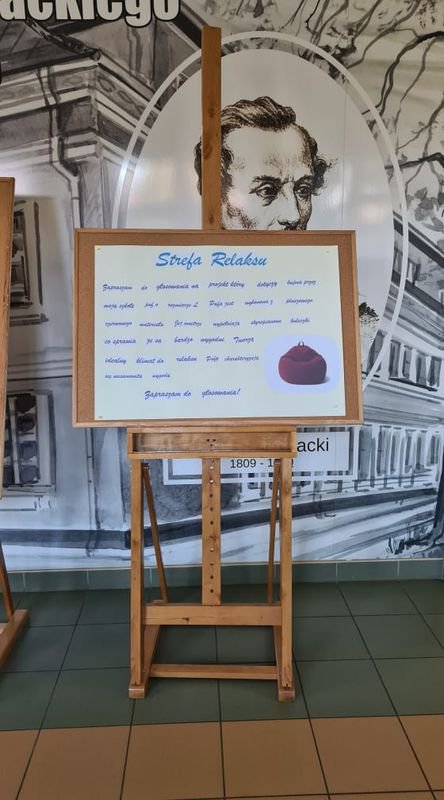 ackiego
Strefa Relaksu
Zapraszam do głosowania na projekt który dotyczy kupna przez
moją szkołę puf o rozmiarze L Pufa jest wykonana z pluszowego
czerwonego materiału Jej wnętrze wypełniają styropianowe kuleczki
co sprawia że są bardzo wygodne Tworzą
idealny klimat do relaksu Pufa charakteryzuje
się niesamowitą wygodą
Zapraszam do głosowania!
acki
1809 - 1